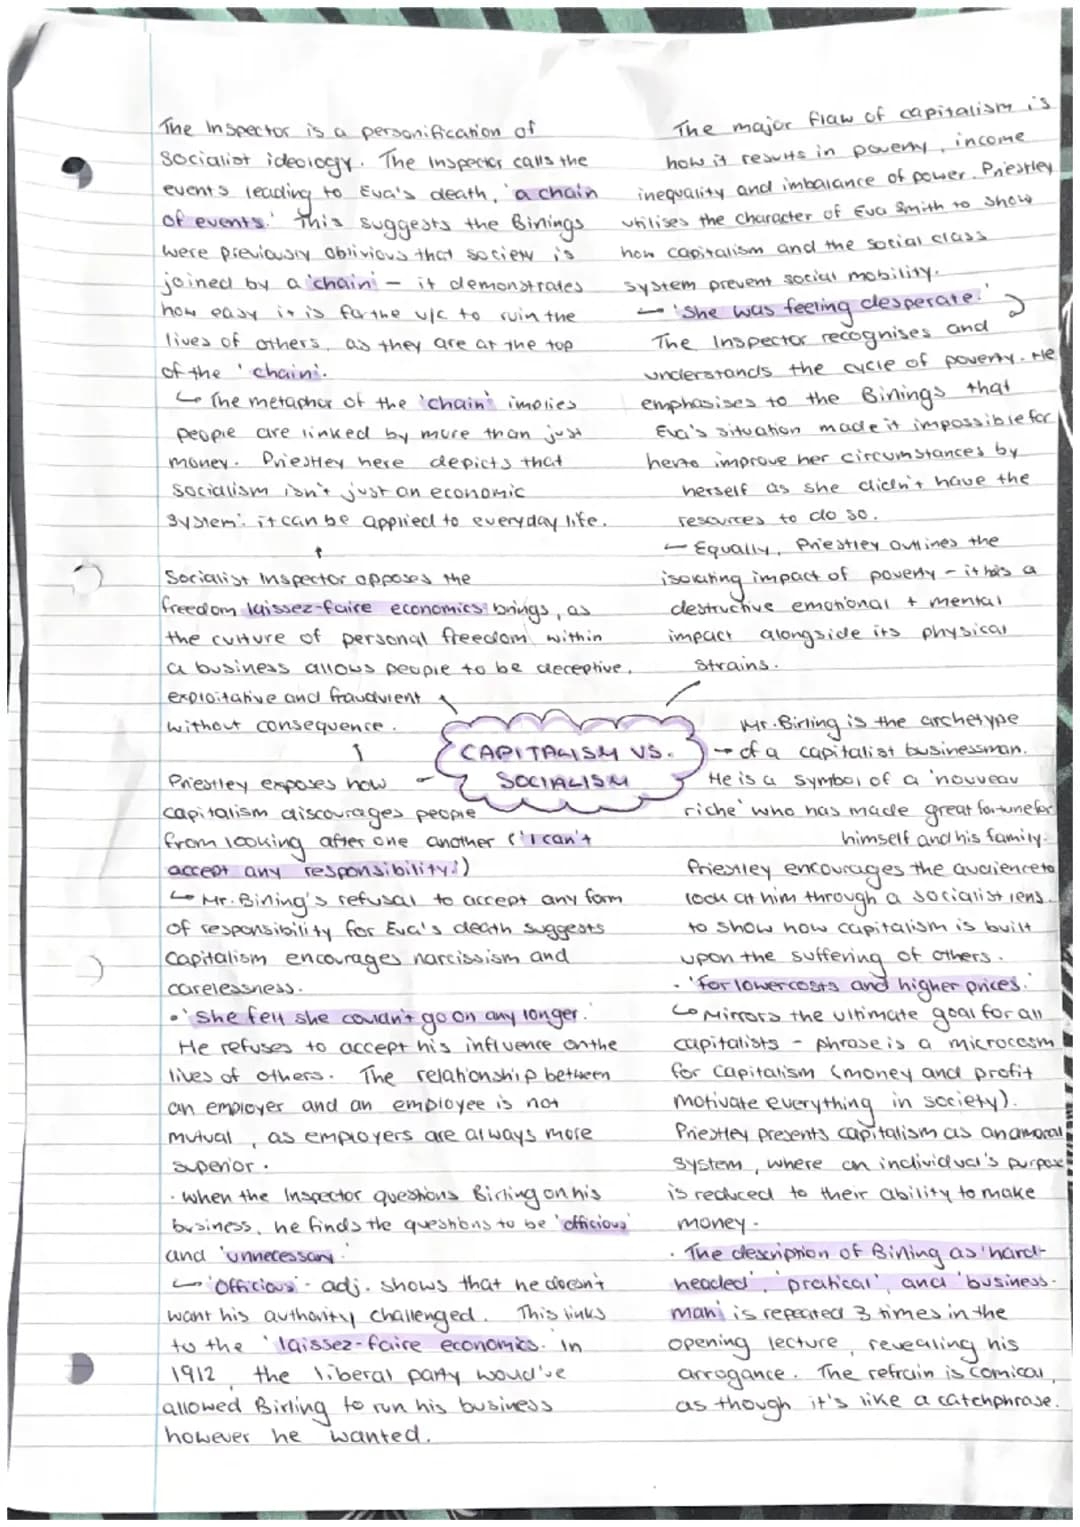 The Inspector is a personification of
Socialist ideology. The Inspector calls the
events leading to Eva's death, 'a chain
of events.' This suggests the Birlings
were previously oblivious that society is
joined by a 'chain' – it demonstrates
how easy it is for the u/c to ruin the
lives of others, as they are at the top
of the 'chain'.
↳ The metaphor of the 'chain' implies
people are linked by more than just
money. Priestley here depicts that
socialism isn't just an economic
system: it can be applied to everyday life.
Socialist Inspector opposes the
freedom laissez-faire economics brings, as
the culture of personal freedom within
a business allows people to be deceptive,
exploitative and fraudulent
without consequence.
Priestley exposes how
capitalism discourages people
from looking after one another ('I can't
accept any responsibility.')
↳ Mr. Birling's refusal to accept any form
of responsibility for Eva's death suggests
Capitalism encourages narcissism and
carelessness.
• 'She felt she couldn't go on any longer.'
He refuses to accept his influence on the
lives of others. The relationship between
an employer and an employee is not
mutual, as employers are always more
superior.
· when the Inspector questions Birling on his
business, he finds the questions to be 'officious'
and 'unnecessary.'
↳ 'Officious' - adj. shows that he doesn't
want his authority challenged. This links
to the 'laissez-faire economics. In
1912, the liberal party would've
allowed Birling to run his business
however he wanted.
CAPITALISM VS.
SOCIALISM
The major flaw of capitalism is
how it results in poverty, income
inequality and imbalance of power. Priestley
utilises the character of Eva Smith to show
how capitalism and the social class
system prevent social mobility.
↳ 'She was feeling desperate.'
The Inspector recognises and
understands the cycle of poverty. He
emphasises to the Birlings that
Eva's situation made it impossible for
her to improve her circumstances by
herself as she didn't have the
resources to do so.
– Equally, Priestley outlines the
isolating impact of poverty – it has a
destructive emotional + mental
impact alongside its physical
strains.
Mr. Birling is the archetype
of a capitalist businessman.
He is a symbol of a 'nouveau
riche' who has made great fortune for
himself and his family.
Priestley encourages the audience to
look at him through a socialist lens
to show how capitalism is built
upon the suffering of others.
· 'for lower costs and higher prices.'
↳ Mirrors the ultimate goal for all
capitalists - phrase is a microcosm
for capitalism (money and profit
motivate everything in society).
Priestley presents capitalism as an amoral
system, where an individual's purpose
is reduced to their ability to make
money.
· The description of Birling as 'hard-
headed', 'pratical', and 'business-
man' is repeated 3 times in the
opening lecture, revealing his
arrogance. The refrain is comical,
as though it's like a catchphrase.